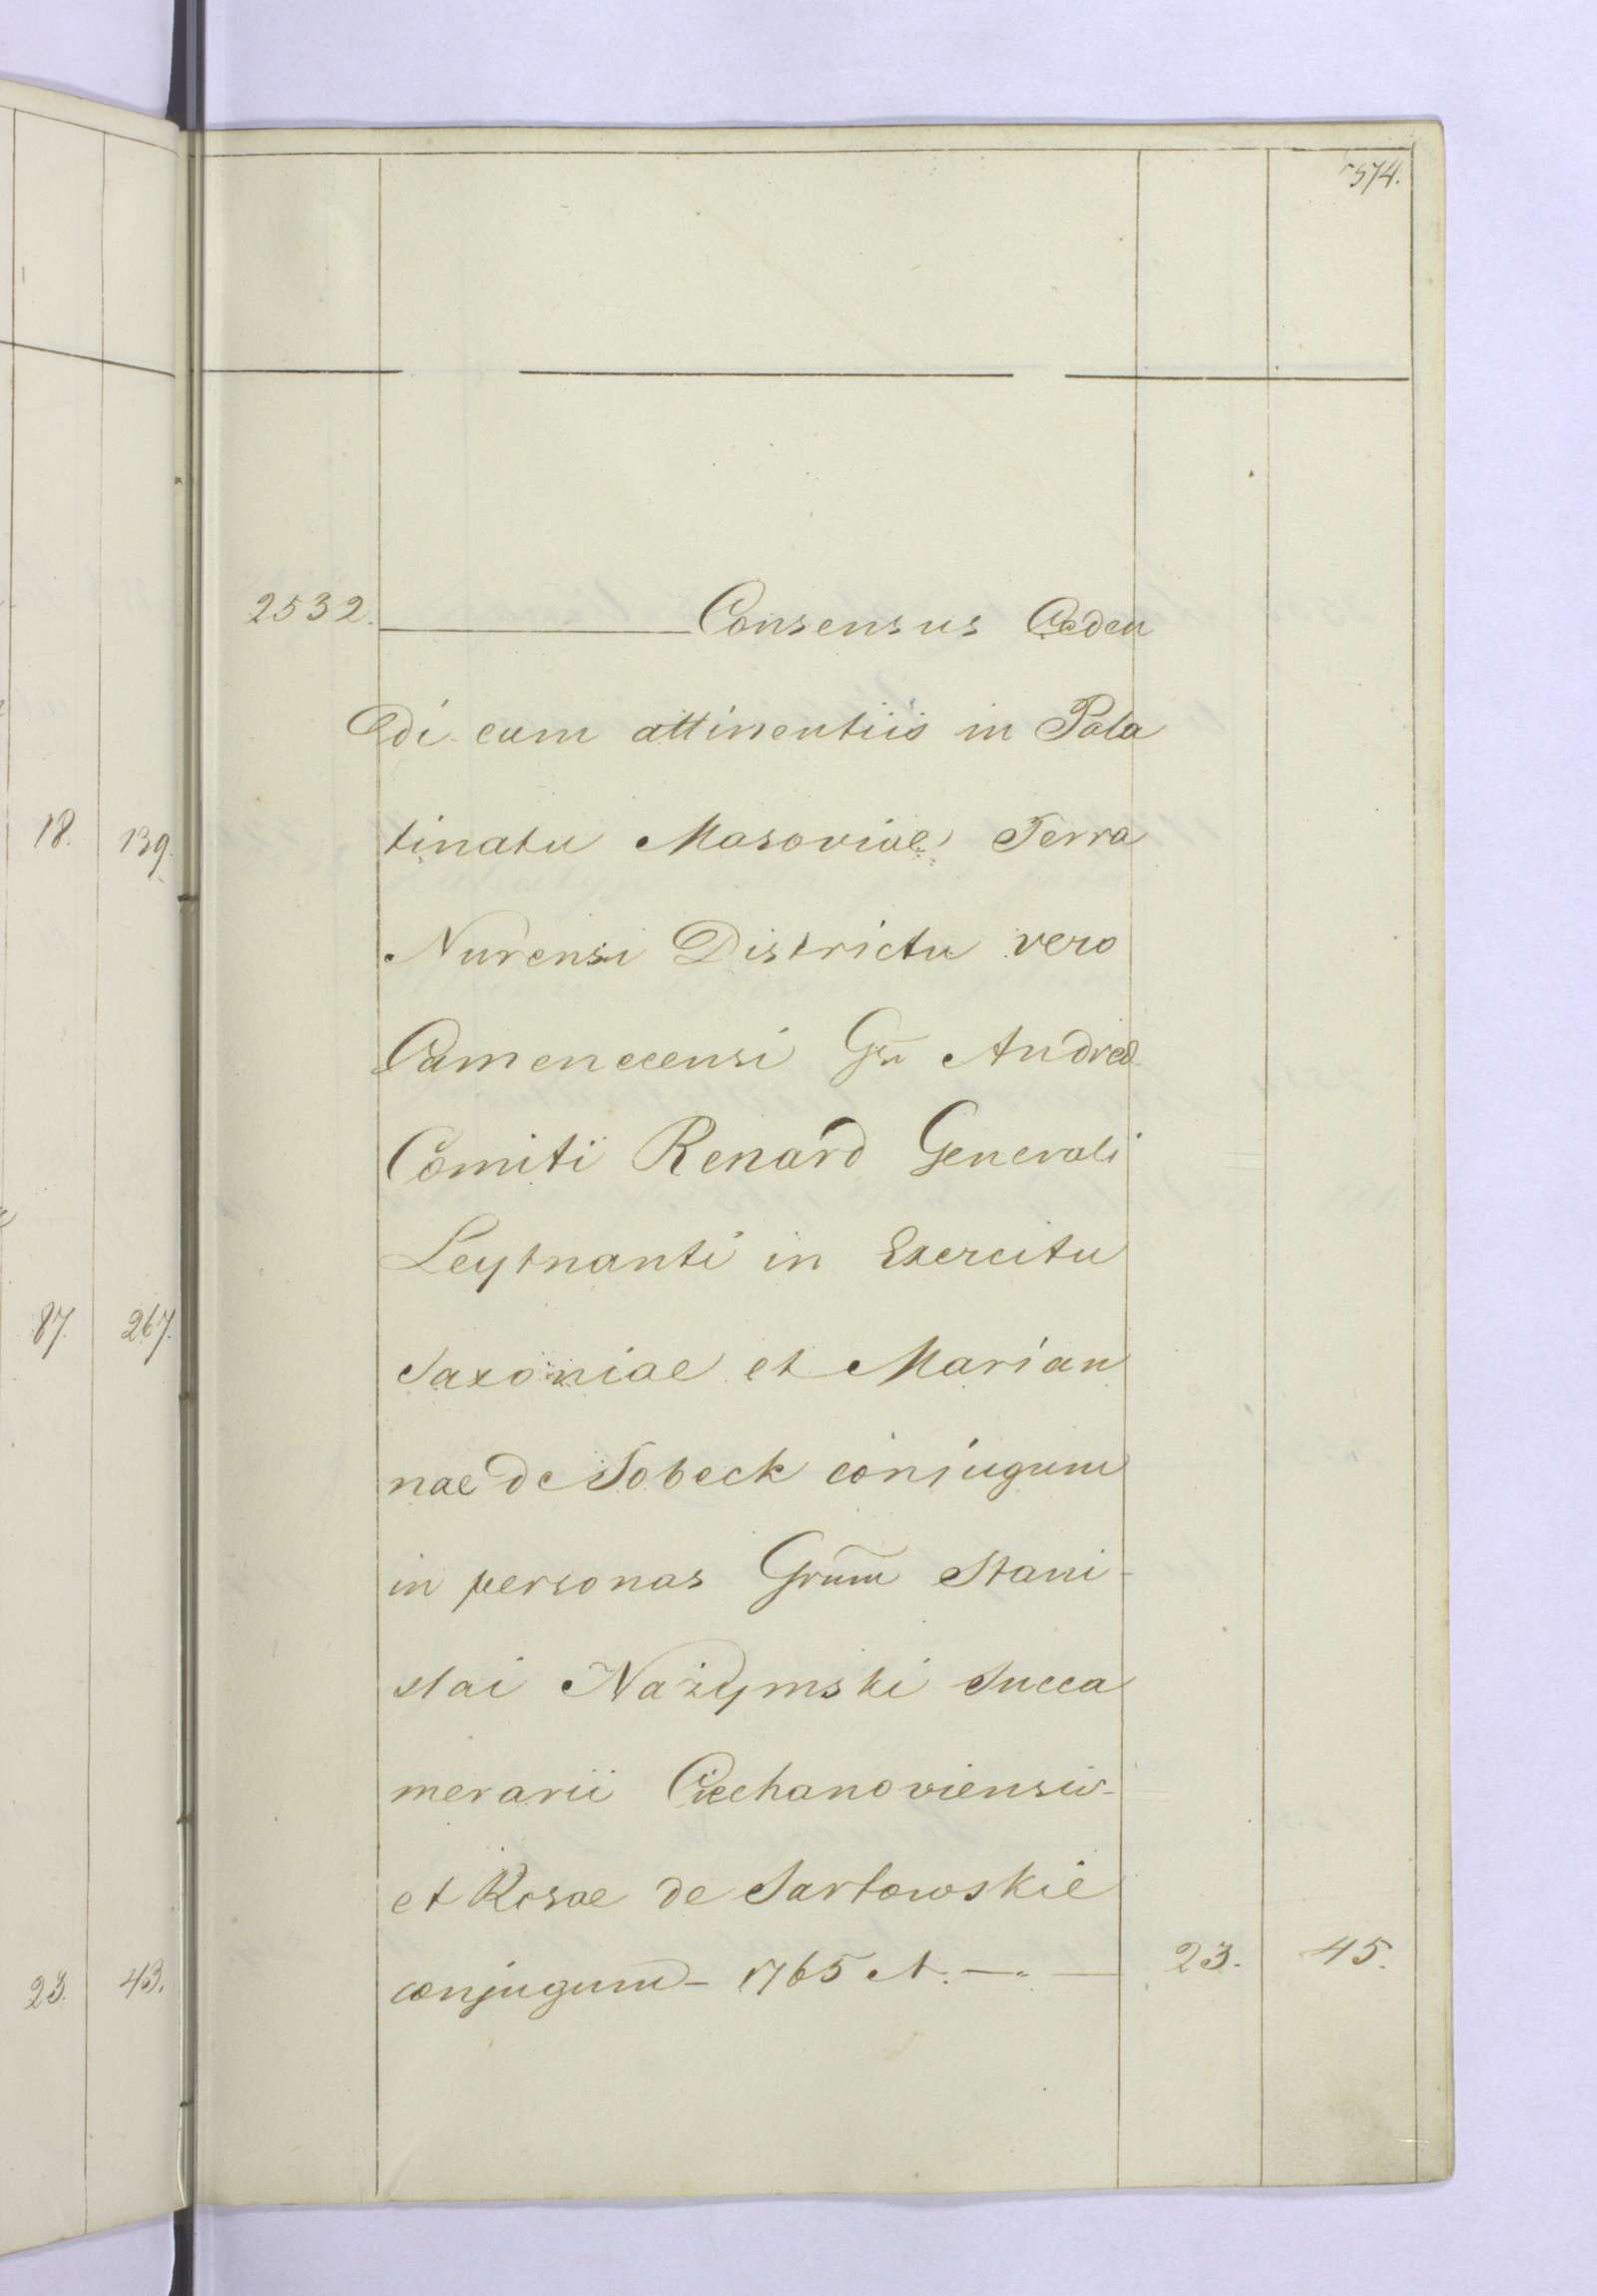 574.
2532. Consensus Ceden
di cum attinentiis in Pala
tinatu Masoviae Terra
Nurensi Districtu vero
Camenecensi Gsi Andreae
Comiti Renard Generali
Leytnanti in Exercitu
Saxoniae et Marian
nae de Sobeck conjugum
in personas Grum Stani-
slai Nażymski Succa
merarii Ciechanoviensis
et Rosae de Sartowskie
conjugum - 1765 A. 23. 45.
18. 139.
87. 267.
23. 43.